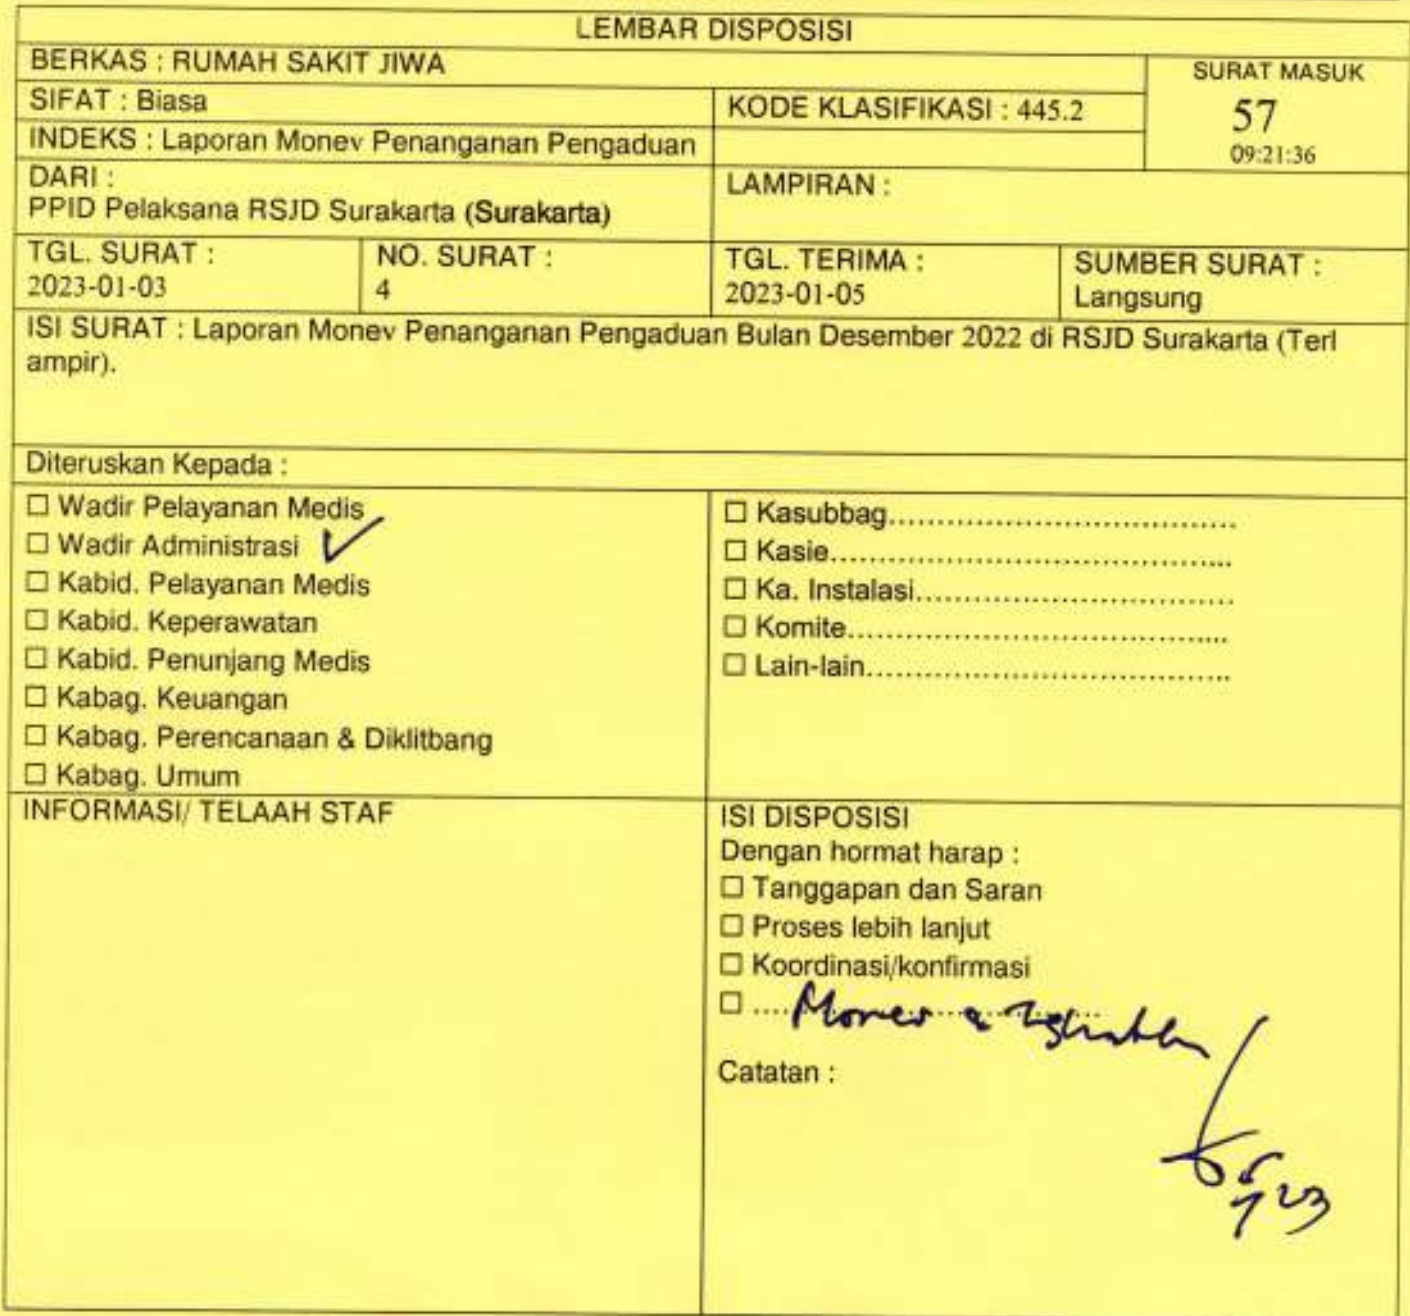 LEMBAR DISPOSISI
BERKAS : RUMAH SAKIT JIWA
SURAT MASUK
57
09:21:36
SIFAT : Biasa
KODE KLASIFIKASI : 445.2
INDEKS : Laporan Monev Penanganan Pengaduan
DARI :
PPID Pelaksana RSJD Surakarta (Surakarta)
LAMPIRAN :
TGL. SURAT :
2023-01-03
NO. SURAT :
4
TGL. TERIMA :
2023-01-05
SUMBER SURAT :
Langsung
ISI SURAT : Laporan Monev Penanganan Pengaduan Bulan Desember 2022 di RSJD Surakarta (Terl
ampir).
Diteruskan Kepada :
☐ Wadir Pelayanan Medis
☐ Wadir Administrasi ✓
☐ Kabid. Pelayanan Medis
☐ Kabid. Keperawatan
☐ Kabid. Penunjang Medis
☐ Kabag. Keuangan
☐ Kabag. Perencanaan & Diklitbang
☐ Kabag. Umum
☐ Kasubbag.....................................
☐ Kasie...........................................
☐ Ka. Instalasi..................................
☐ Komite.........................................
☐ Lain-lain.......................................
INFORMASI/ TELAAH STAF
ISI DISPOSISI
Dengan hormat harap :
☐ Tanggapan dan Saran
☐ Proses lebih lanjut
☐ Koordinasi/konfirmasi
☐ .... Monev
Catatan :